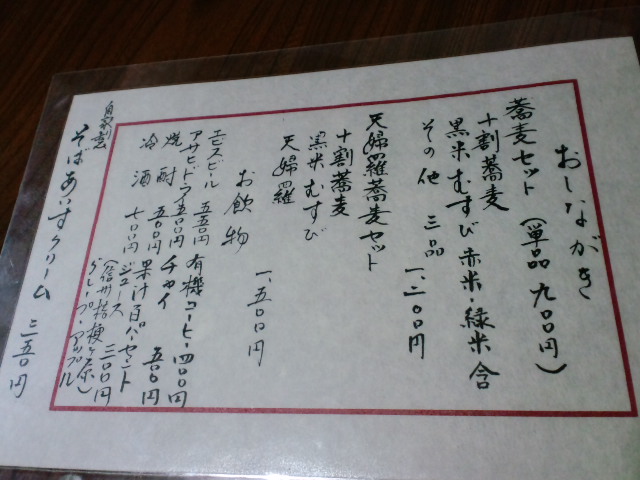 おしながき
蕎麦セット（単品 九〇〇円）
十割蕎麦
黒米むすび 赤米・緑米含
その他 三品
一、二〇〇円
天婦羅蕎麦セット
十割蕎麦
黒米むすび
天婦羅
一、五〇〇円
お飲物
エビスビール 五五〇円
アサヒドライ 五〇〇円
焼酎 五〇〇円
冷酒 七〇〇円
有機コーヒー 四〇〇円
チャイ 五〇〇円
果汁百パーセント
ジュース 三〇〇円
（信州桔梗ヶ原）
グレープ・アップル
自家製
そばあいすクリーム 三五〇円